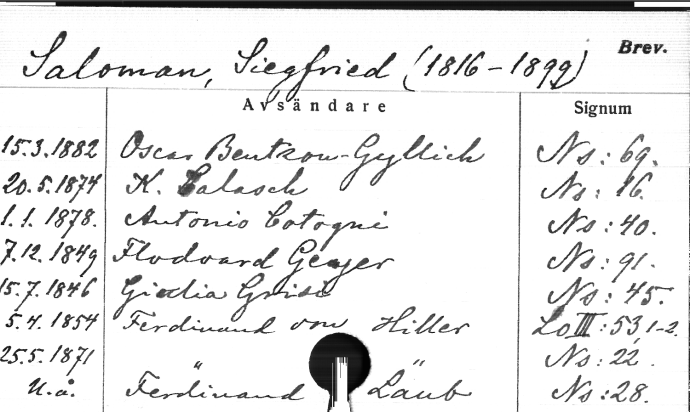 Brev.
Saloman, Siegfried (1816-1899)
Avsändare Signum
15.3.1882 Oscar Bentzon-Gyllich Ns: 69.
20.5.1874 K. Ns: 16.
1.1.1878. Antonio Cotogni Ns: 40.
7.12.1849 Flodoard Geyer Ns: 91.
15.7.1846 Giulia Grisi Ns: 45.
5.4.1854 Ferdinand von Hiller Lo III: 53, 1-2.
25.5.1871 " " Ns: 22.
U.å. Ferdinand Laub Ns: 28.